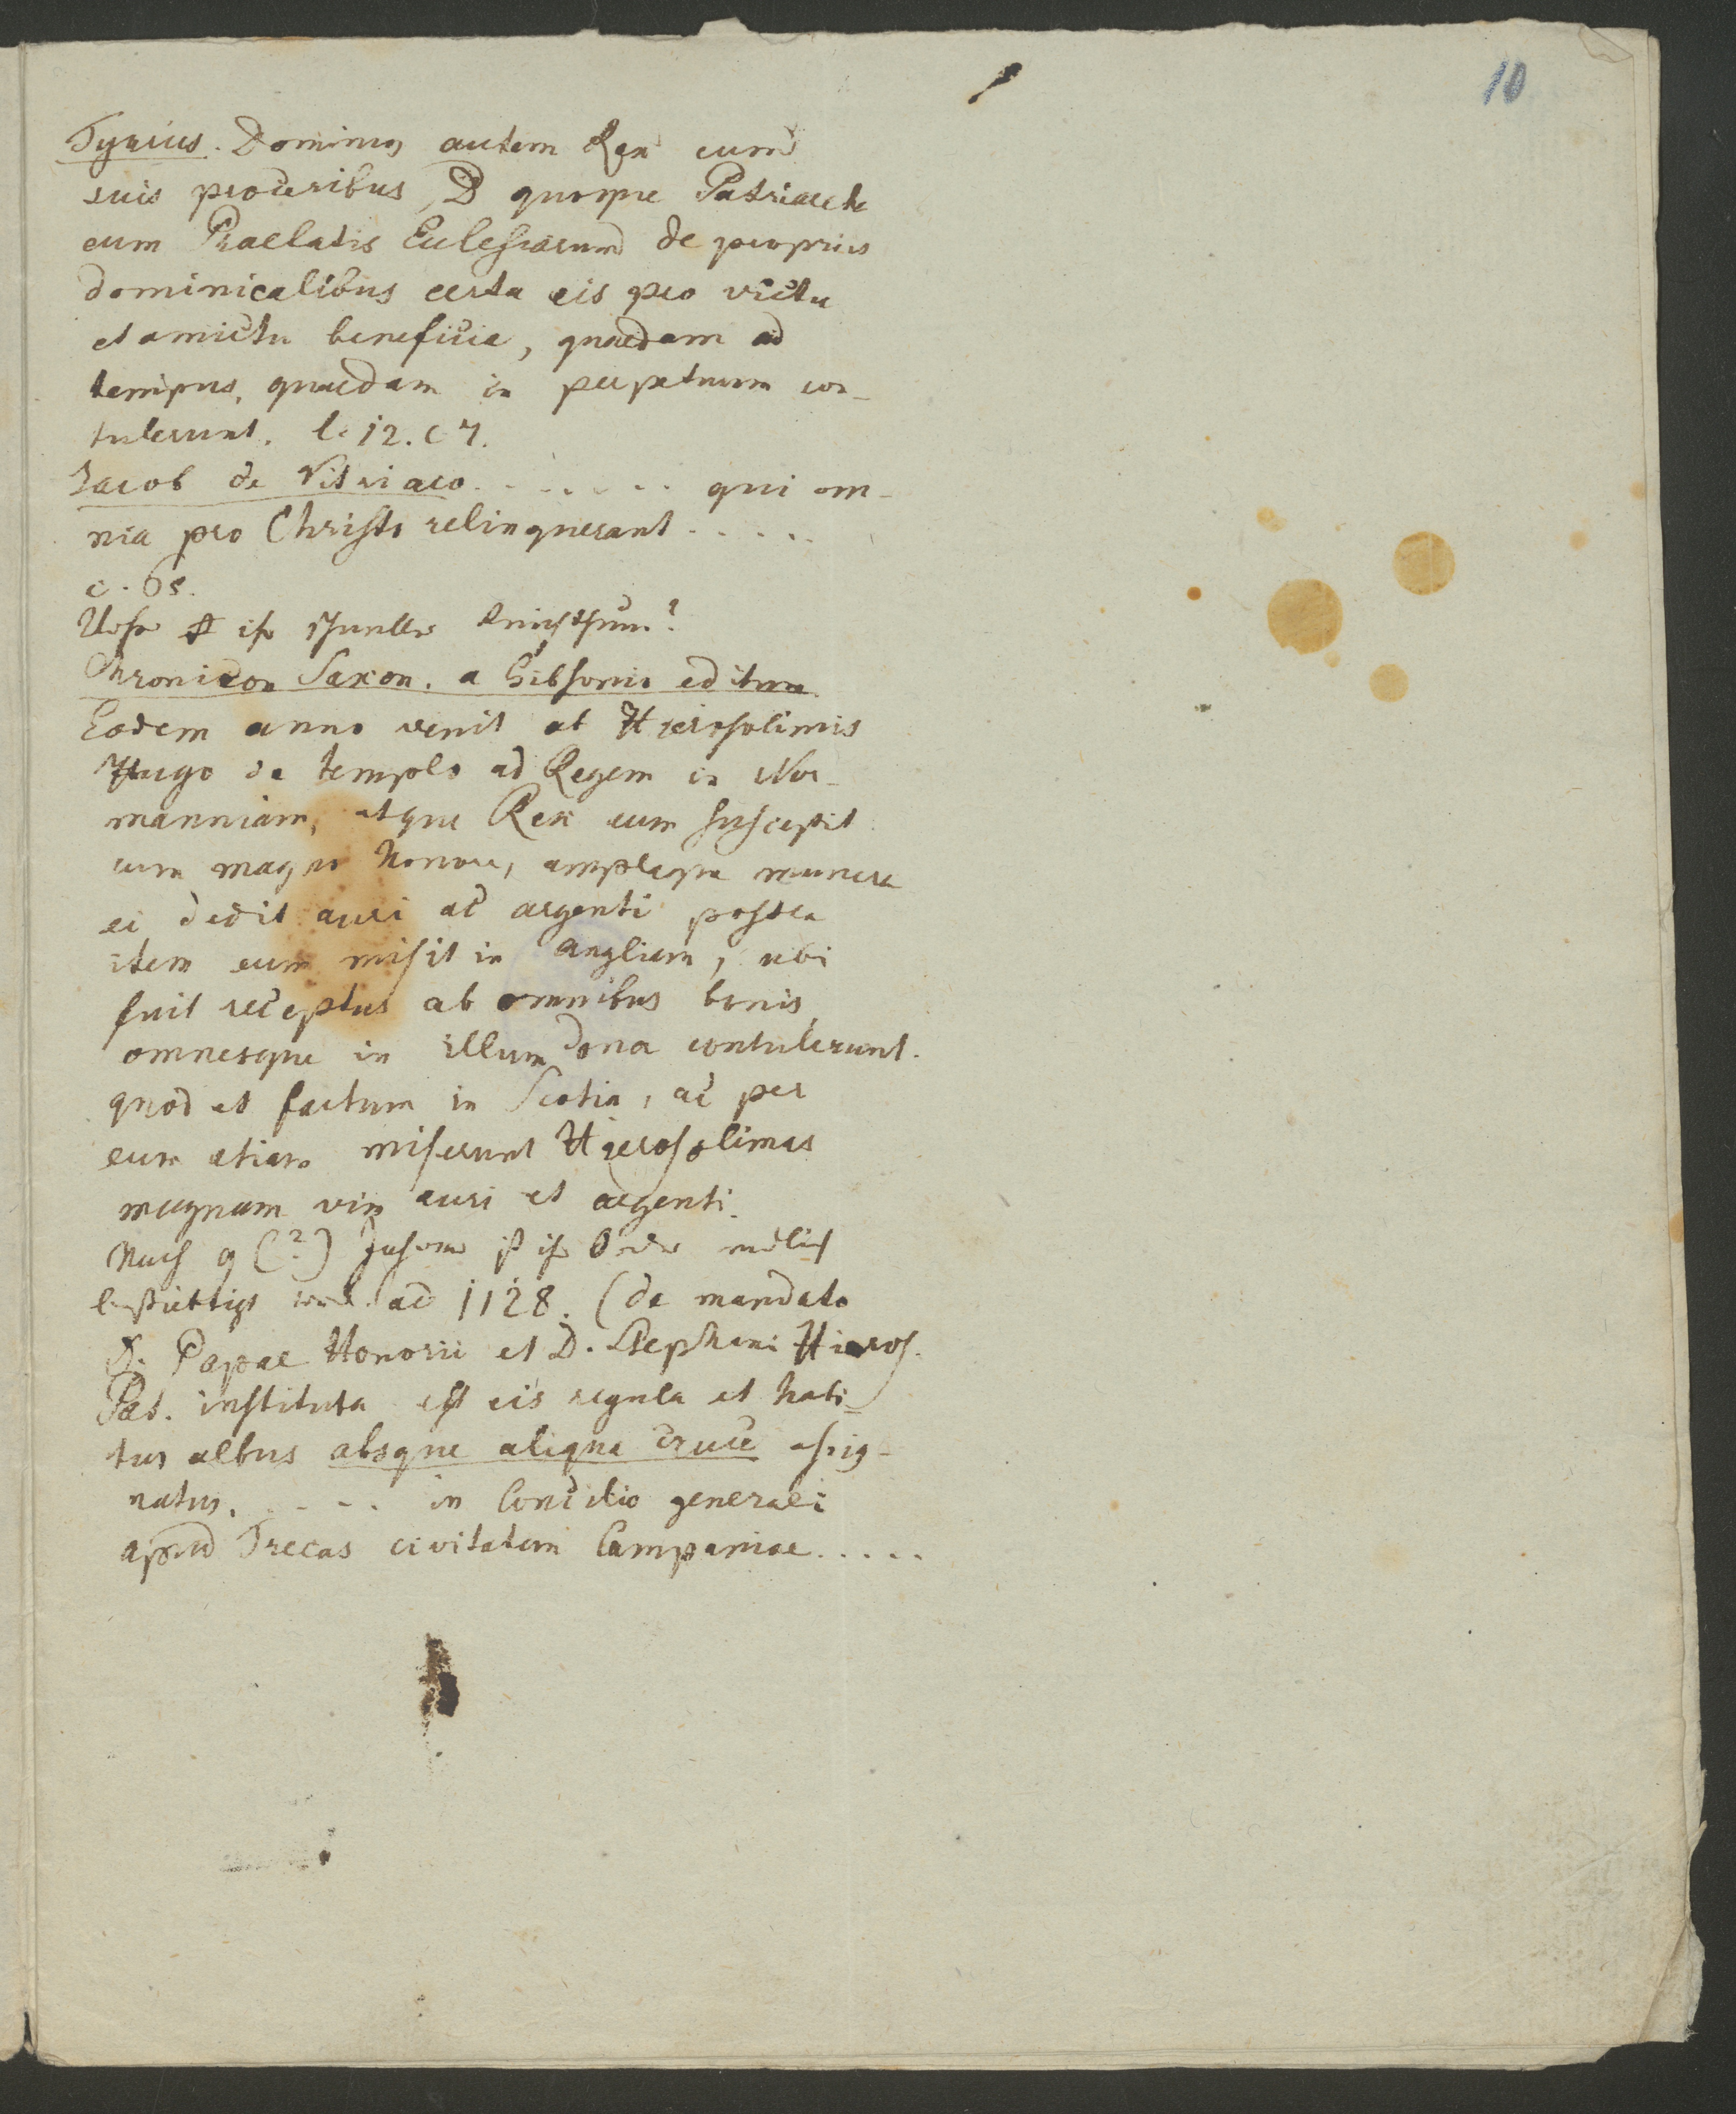 10
Tyrius. Dominus autem Rex cum
suis proceribus, D quoque Patriarcha
cum Praelatis Ecclesiarum de propriis
dominicalibus certa eis pro victu
et amictu beneficia, quaedam ad
tempus, quaedam in perpetuum con-
tulerunt. l. 12. c 7.
Jacob de Vitriaco . . . . . . . qui om-
nia pro Christo relinquerant . . . . .
c. 65.
Chronicon Saxon. a Gibsonio editum
Eodem anno venit ab Hierosolimis
Hugo de templo ad Regem in Nor-
manniam, atque Rex eum suscepit
cum magno honore, amplaque munera
ei dedit auri ac argenti postea
item eum misit in Angliam, ubi
fuit receptus ab omnibus bonis,
omnesque in illum dona contulerunt.
quod et factum in Scotia, ac per
eum etiam miserunt Hierosolimas
magnam vim auri et argenti.
Nach 9 (?) Jahren ist ihr Orden endlich
bestättigt ad 1128. (de mandato
D. Papae Honorii et D. Stephani Hieros.
Pat. instituta est eis regula et habi-
tus albus absque aliqua cruce assig-
natus. . . . . in Concilio generali
apud Trecas civitatem Campaniae . . . . .